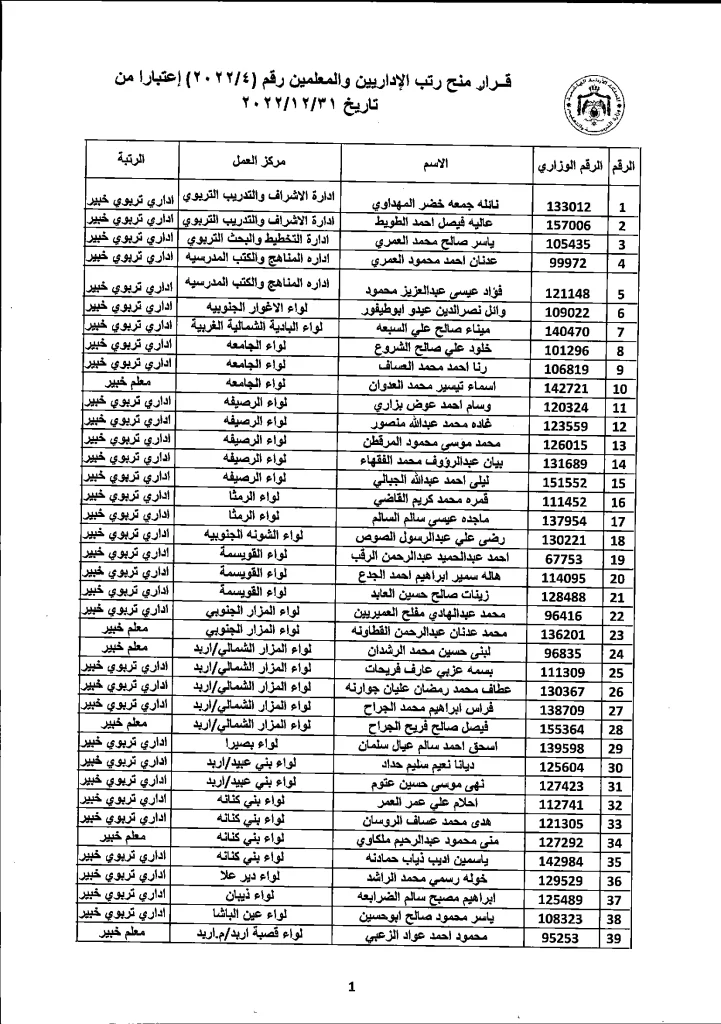 قرار منح رتب الإداريين والمعلمين رقم (٢٠٢٢/٤) إعتبارا من
تاريخ ٢٠٢٢/١٢/٣١
الرقم الرقم الوزاري الاسم مركز العمل الرتبة
1 133012 نائله جمعه خضر المهداوي ادارة الاشراف والتدريب التربوي اداري تربوي خبير
2 157006 عاليه فيصل احمد الطويط ادارة الاشراف والتدريب التربوي اداري تربوي خبير
3 105435 ياسر صالح محمد العمري ادارة التخطيط والبحث التربوي اداري تربوي خبير
4 99972 عدنان احمد محمود العمري اداره المناهج والكتب المدرسيه اداري تربوي خبير
5 121148 فؤاد عيسى عبدالعزيز محمود اداره المناهج والكتب المدرسيه اداري تربوي خبير
6 109022 وائل نصرالدين عيدو ابوطيفور لواء الاغوار الجنوبيه اداري تربوي خبير
7 140470 ميناء صالح علي السبعه لواء البادية الشمالية الغربية اداري تربوي خبير
8 101296 خلود علي صالح الشروع لواء الجامعه اداري تربوي خبير
9 106819 رنا احمد محمد العساف لواء الجامعه اداري تربوي خبير
10 142721 اسماء تيسير محمد العدوان لواء الجامعه معلم خبير
11 120324 وسام احمد عوض بزاري لواء الرصيفه اداري تربوي خبير
12 123559 غاده محمد عبدالله منصور لواء الرصيفه اداري تربوي خبير
13 126015 محمد موسى محمود المرقطن لواء الرصيفه اداري تربوي خبير
14 131689 بيان عبدالرؤوف محمد الفقهاء لواء الرصيفه اداري تربوي خبير
15 151552 ليلى احمد عبدالله الجبالي لواء الرصيفه اداري تربوي خبير
16 111452 قمره محمد كريم القاضي لواء الرمثا اداري تربوي خبير
17 137954 ماجده عيسى سالم السالم لواء الرمثا اداري تربوي خبير
18 130221 رضى علي عبدالرسول الصوص لواء الشونه الجنوبيه اداري تربوي خبير
19 67753 احمد عبدالحميد عبدالرحمن الرقب لواء القويسمة اداري تربوي خبير
20 114095 هاله سمير ابراهيم احمد الجدع لواء القويسمة اداري تربوي خبير
21 128488 زينات صالح حسين العابد لواء القويسمة اداري تربوي خبير
22 96416 محمد عبدالهادي مفلح العميريين لواء المزار الجنوبي اداري تربوي خبير
23 136201 محمد عدنان عبدالرحمن القطاونه لواء المزار الجنوبي معلم خبير
24 96835 لبنى حسين محمد الرشدان لواء المزار الشمالي/اربد معلم خبير
25 111309 بسمه عزبي عارف فريحات لواء المزار الشمالي/اربد اداري تربوي خبير
26 130367 عطاف محمد رمضان عليان جوارنه لواء المزار الشمالي/اربد اداري تربوي خبير
27 138709 فراس ابراهيم محمد الجراح لواء المزار الشمالي/اربد اداري تربوي خبير
28 155364 فيصل صالح فريح الجراح لواء المزار الشمالي/اربد معلم خبير
29 139598 اسحق احمد سالم عيال سلمان لواء بصيرا اداري تربوي خبير
30 125604 ديانا نعيم سليم حداد لواء بني عبيد/اربد اداري تربوي خبير
31 127423 نهى موسى حسين عتوم لواء بني عبيد/اربد اداري تربوي خبير
32 112741 احلام علي عمر العمر لواء بني كنانه اداري تربوي خبير
33 121305 هدى محمد عساف الروسان لواء بني كنانه اداري تربوي خبير
34 127292 منى محمود عبدالرحيم ملكاوي لواء بني كنانه معلم خبير
35 142984 ياسمين اديب ذياب حمادنه لواء بني كنانه اداري تربوي خبير
36 129529 خوله رسمي محمد الراشد لواء دير علا اداري تربوي خبير
37 125489 ابراهيم مصبح سالم الضرابعه لواء ذيبان اداري تربوي خبير
38 108323 ياسر محمود صالح ابوحسين لواء عين الباشا اداري تربوي خبير
39 95253 محمود احمد عواد الزعبي لواء قصبة اربد/م.اربد معلم خبير
1